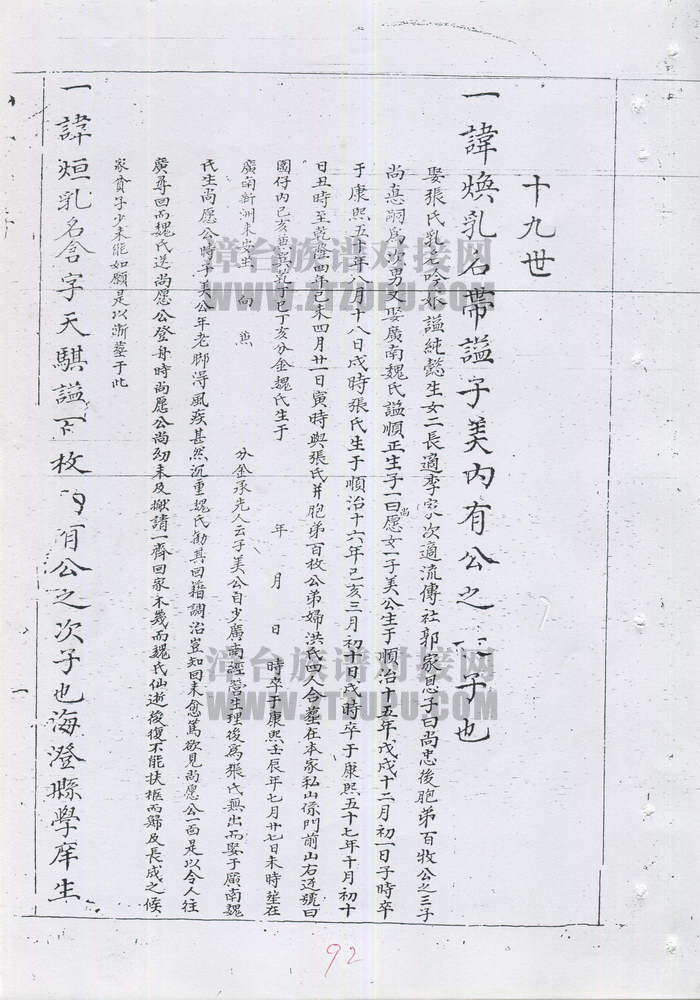 十九世
一諱煥乳名帶諡子美內有公之三子也
娶張氏乳名吟娘諡純懿生女二長適李家次適流傳社郭家息子曰尚忠後胞弟百牧公之三子
尚悳嗣為次男又娶廣南魏氏諡順正生子一曰尚愿女一子美公生于順治十五年戊戌十二月初一日子時卒
于康熙五十年八月十八日戌時張氏生于順治十六年己亥三月初十日戌時卒于康熙五十七年十月初十
日丑時至乾隆四年己未四月廿一日寅時與張氏并胞弟百牧公弟婦洪氏四人合塟在本家私山係門前山右邊號曰
園仔內己亥兼巽乾丁巳丁亥分金魏氏生于 年 月 日 時卒于康熙壬辰年七月廿七日未時塟在
廣南新洲未安出 向 兼 分金承先人云子美公自少廣南經營生理後為張氏無出而娶于廣南魏
氏生尚愿公時子美公年老脚淂風疾甚然沉重魏氏勸其回籍調治豈知回來愈篤欲見尚愿公一面是以令人往
廣尋回而魏氏送尚愿公登舟時尚愿公尚幼未及搬請一齊回家不幾而魏氏仙逝後復不能扶柩而歸及長成之候
家貧子少未能如願是以漸塟于此
一諱烜乳名含字天騏諡百牧內有公之次子也海澄縣學庠生
一
92
漳台族谱对接网
WWW.ZTZUPU.COM
漳台族谱对接网
WWW.ZTZUPU.COM